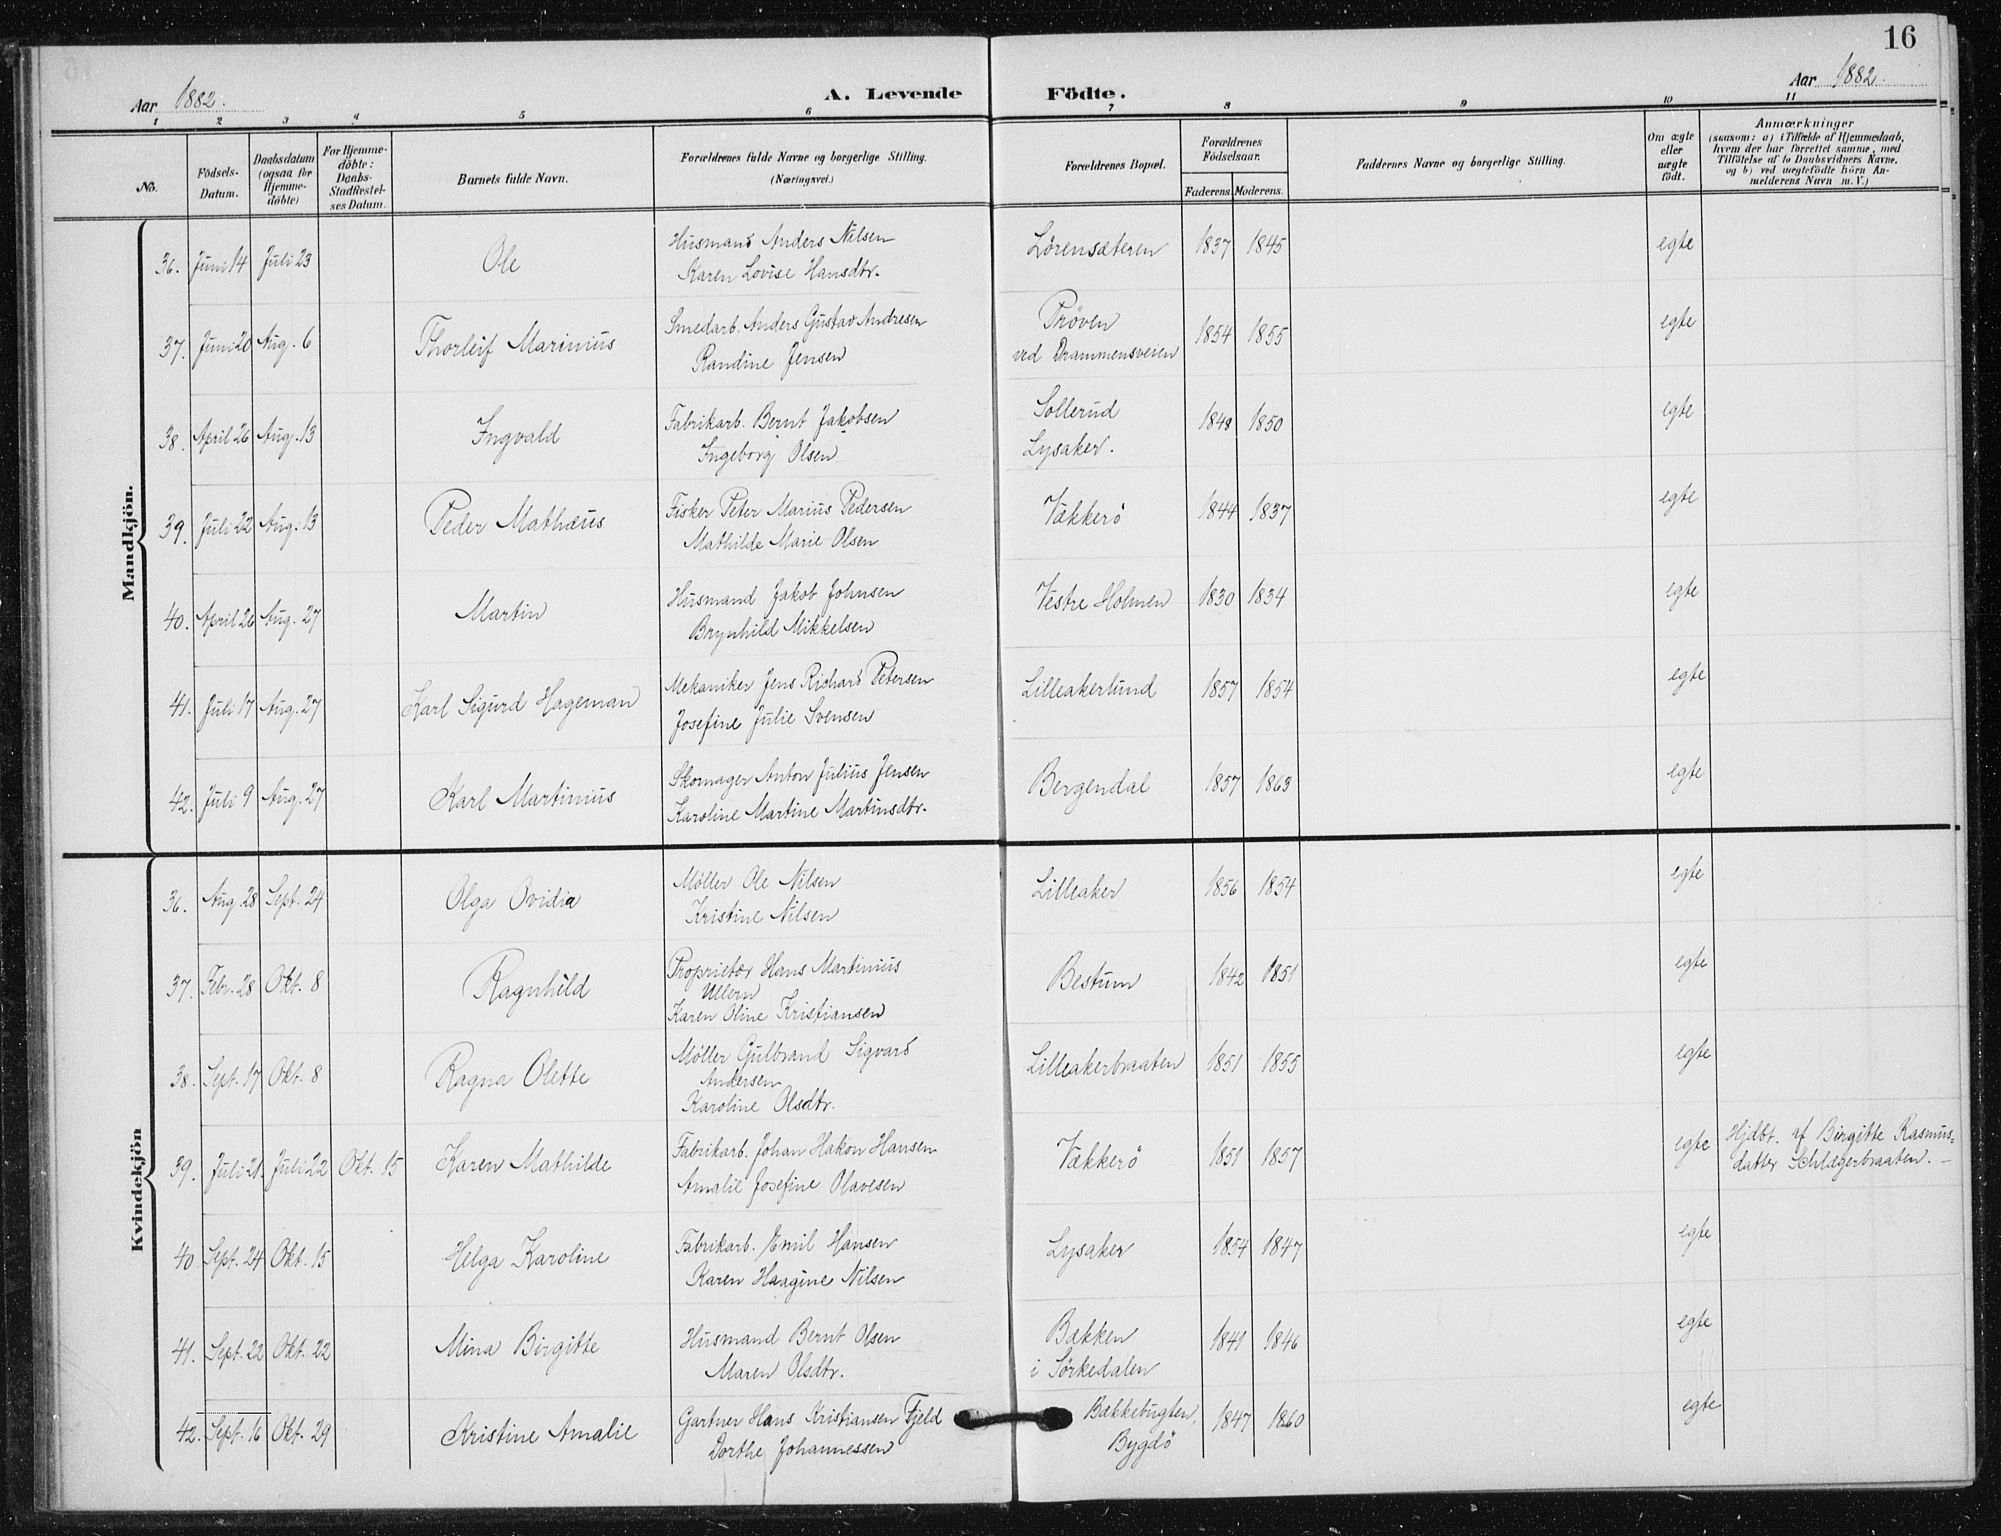 16
Aar 1882.
A. Levende Födte.
Aar 1882.
1 2 3 4 5 6 7 8 9 10 11
No.
Födsels-Datum.
Daabsdatum (ogsaa for Hjemme-döbte)
For Hjemme-döbte: Daabs-Stadfæstel-ses Datum.
Barnets fulde Navn.
Forældrenes fulde Navne og borgerlige Stilling.
(Næringsvei.)
Forældrenes Bopæl.
Forældrenes Födselsaar.
Faderens. Moderens.
Faddernes Navne og borgerlige Stilling.
Om ægte eller uægte födt.
Anmærkninger
(saasom: a) i Tilfælde af Hjemmedaab,
hvem der har forrettet samme, med
Tilföielse af to Daabsvidners Navne.
og b) ved uægtefödte börn An-
melderens Navn m. V.)
Mandkjön.
36. Juni 14 Juli 23 Ole Husmand Anders Nilsen Lörensæteren 1837 1845 egte
Karen Lovise Hansdtr.
37. Juni 20 Aug. 6 Thorleif Marinius Smedarb. Anders Gustav Andresen Pröven 1854 1855 egte
Randine Jensen ved Drammensveien
38. April 26 Aug. 13 Ingvald Fabrikarb. Bernt Jakobsen Sollerud 1848 1850 egte
Ingeborg Olsen Lysaker.
39. Juli 22 Aug. 13 Peder Mathæus Fisker Peter Marius Pedersen Vækkerö 1844 1837 egte
Mathilde Marie Olsen
40. April 26 Aug. 27 Martin Husmand Jakob Johnsen Vestre Holmen 1830 1834 egte
Brynhild Mikkelsen
41. Juli 17 Aug. 27 Karl Sigurd Hageman Mekaniker Jens Richard Petersen Lilleakerlund 1857 1854 egte
Josefine Julie Svensen
42. Juli 9 Aug. 27 Karl Martinius Skomager Anton Julius Jensen Bergendal 1857 1863 egte
Karoline Martine Martinsdtr.
Kvindekjön
36. Aug. 28 Sept. 24 Olga Ovidia Möller Ole Nilsen Lilleaker 1856 1854 egte
Kristine Nilsen
37. Febr. 28 Okt. 8 Ragnhild Proprietær Hans Martinius Bestum 1842 1851 egte
Ullern
Karen Oline Kristiansen
38. Sept. 17 Okt. 8 Ragna Olette Möller Gulbrand Sigvard Lilleakerbraaten 1851 1855 egte
Andersen
Karoline Olsdtr.
39. Juli 21 Juli 22 Okt. 15 Karen Mathilde Fabrikarb. Johan Hakon Hansen Vækkerö 1851 1857 egte Hjdbt. af Birgitte Rasmus-
Amalie Josefine Olavesen datter Schlægerbraaten. —
40. Sept. 24 Okt. 15 Helga Karoline Fabrikarb. Emil Hansen Lysaker 1854 1847 egte
Karen Haagine Nilsen
41. Sept. 22 Okt. 22 Mina Birgitte Husmand Bernt Olsen Bækken 1841 1846 egte
Maren Olsdtr. i Sörkedalen
42. Sept. 16 Okt. 29 Kristine Amalie Gartner Hans Kristiansen Fjeld Bækkebugten, 1847 1860 egte
Dorthe Johannessen Bygdö